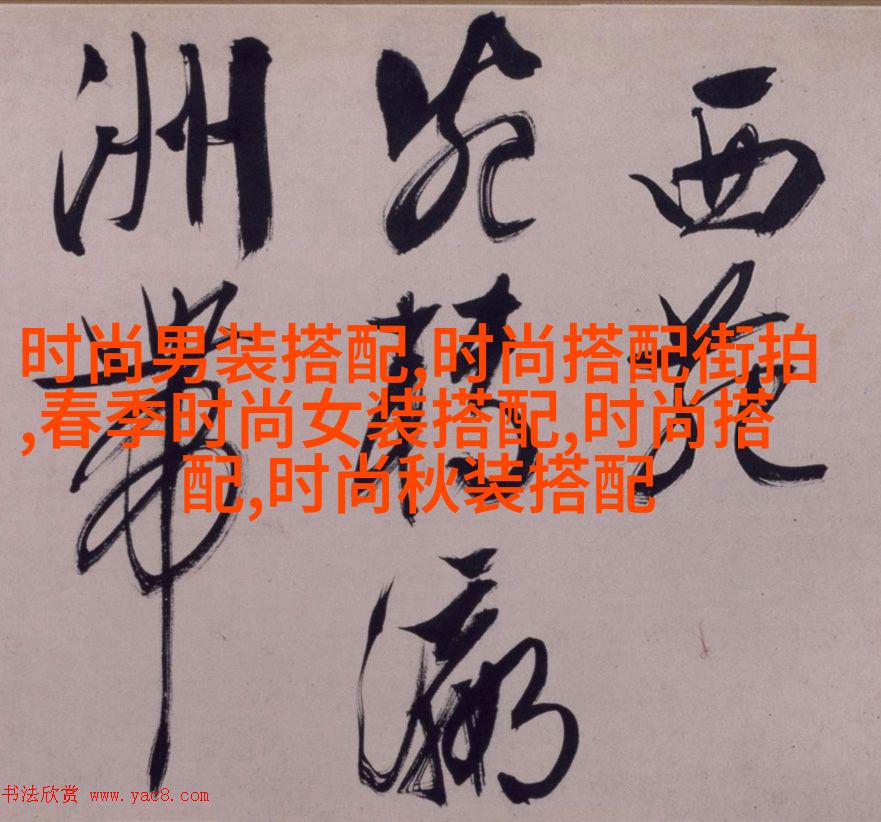 西苑
瀛
洲帶
时尚男装搭配,时尚搭配街拍
,春季时尚女装搭配,时尚搭
配,时尚秋装搭配
书法欣赏 www.yac8.com